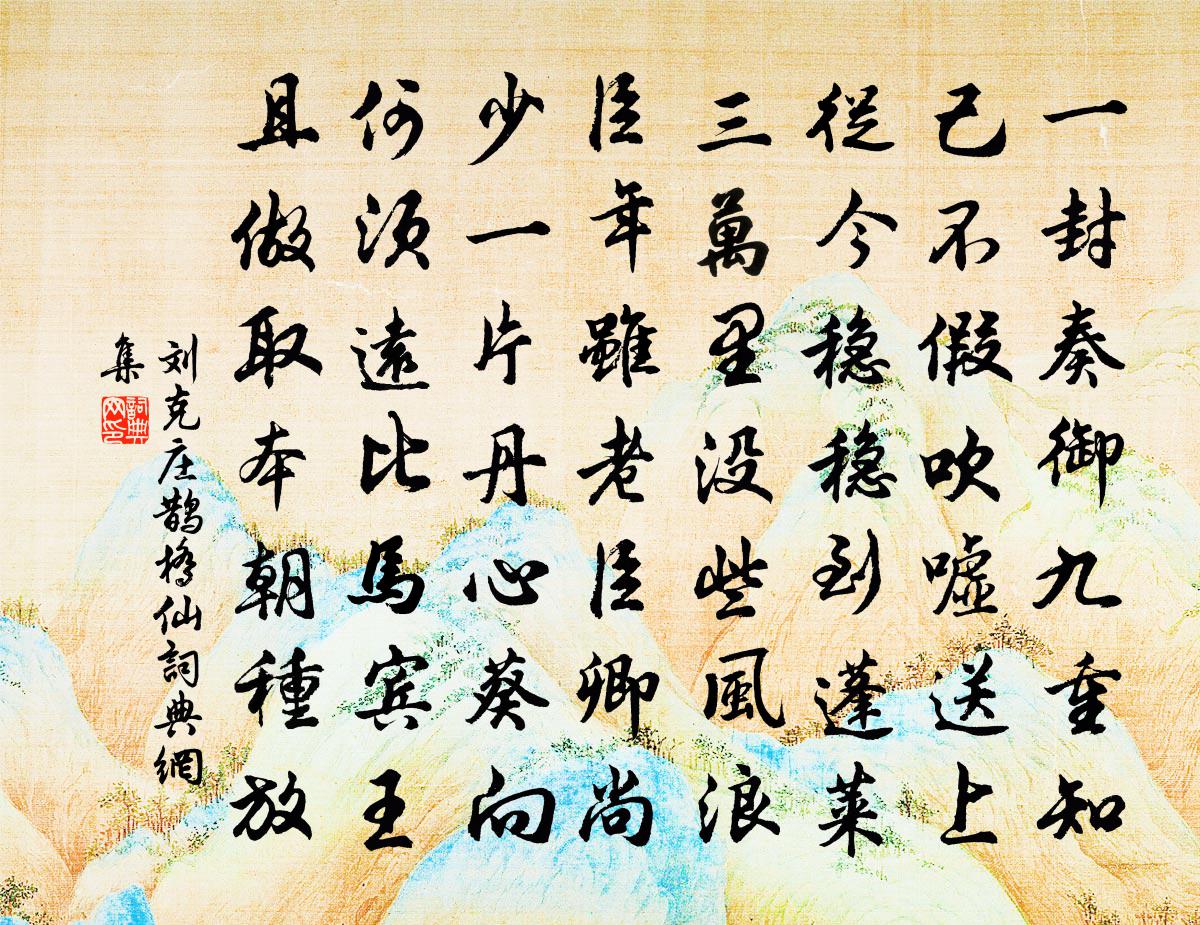 一封奏御九重知
己不假吹噓送上
從今稳稳到蓬莱
三萬里没些風浪
臣年雖老臣卿尚
少一片丹心葵向
何须遠比馬宾王
且做取本朝種放
刘克庄鹊橋仙詞典網
集
詞典
网印